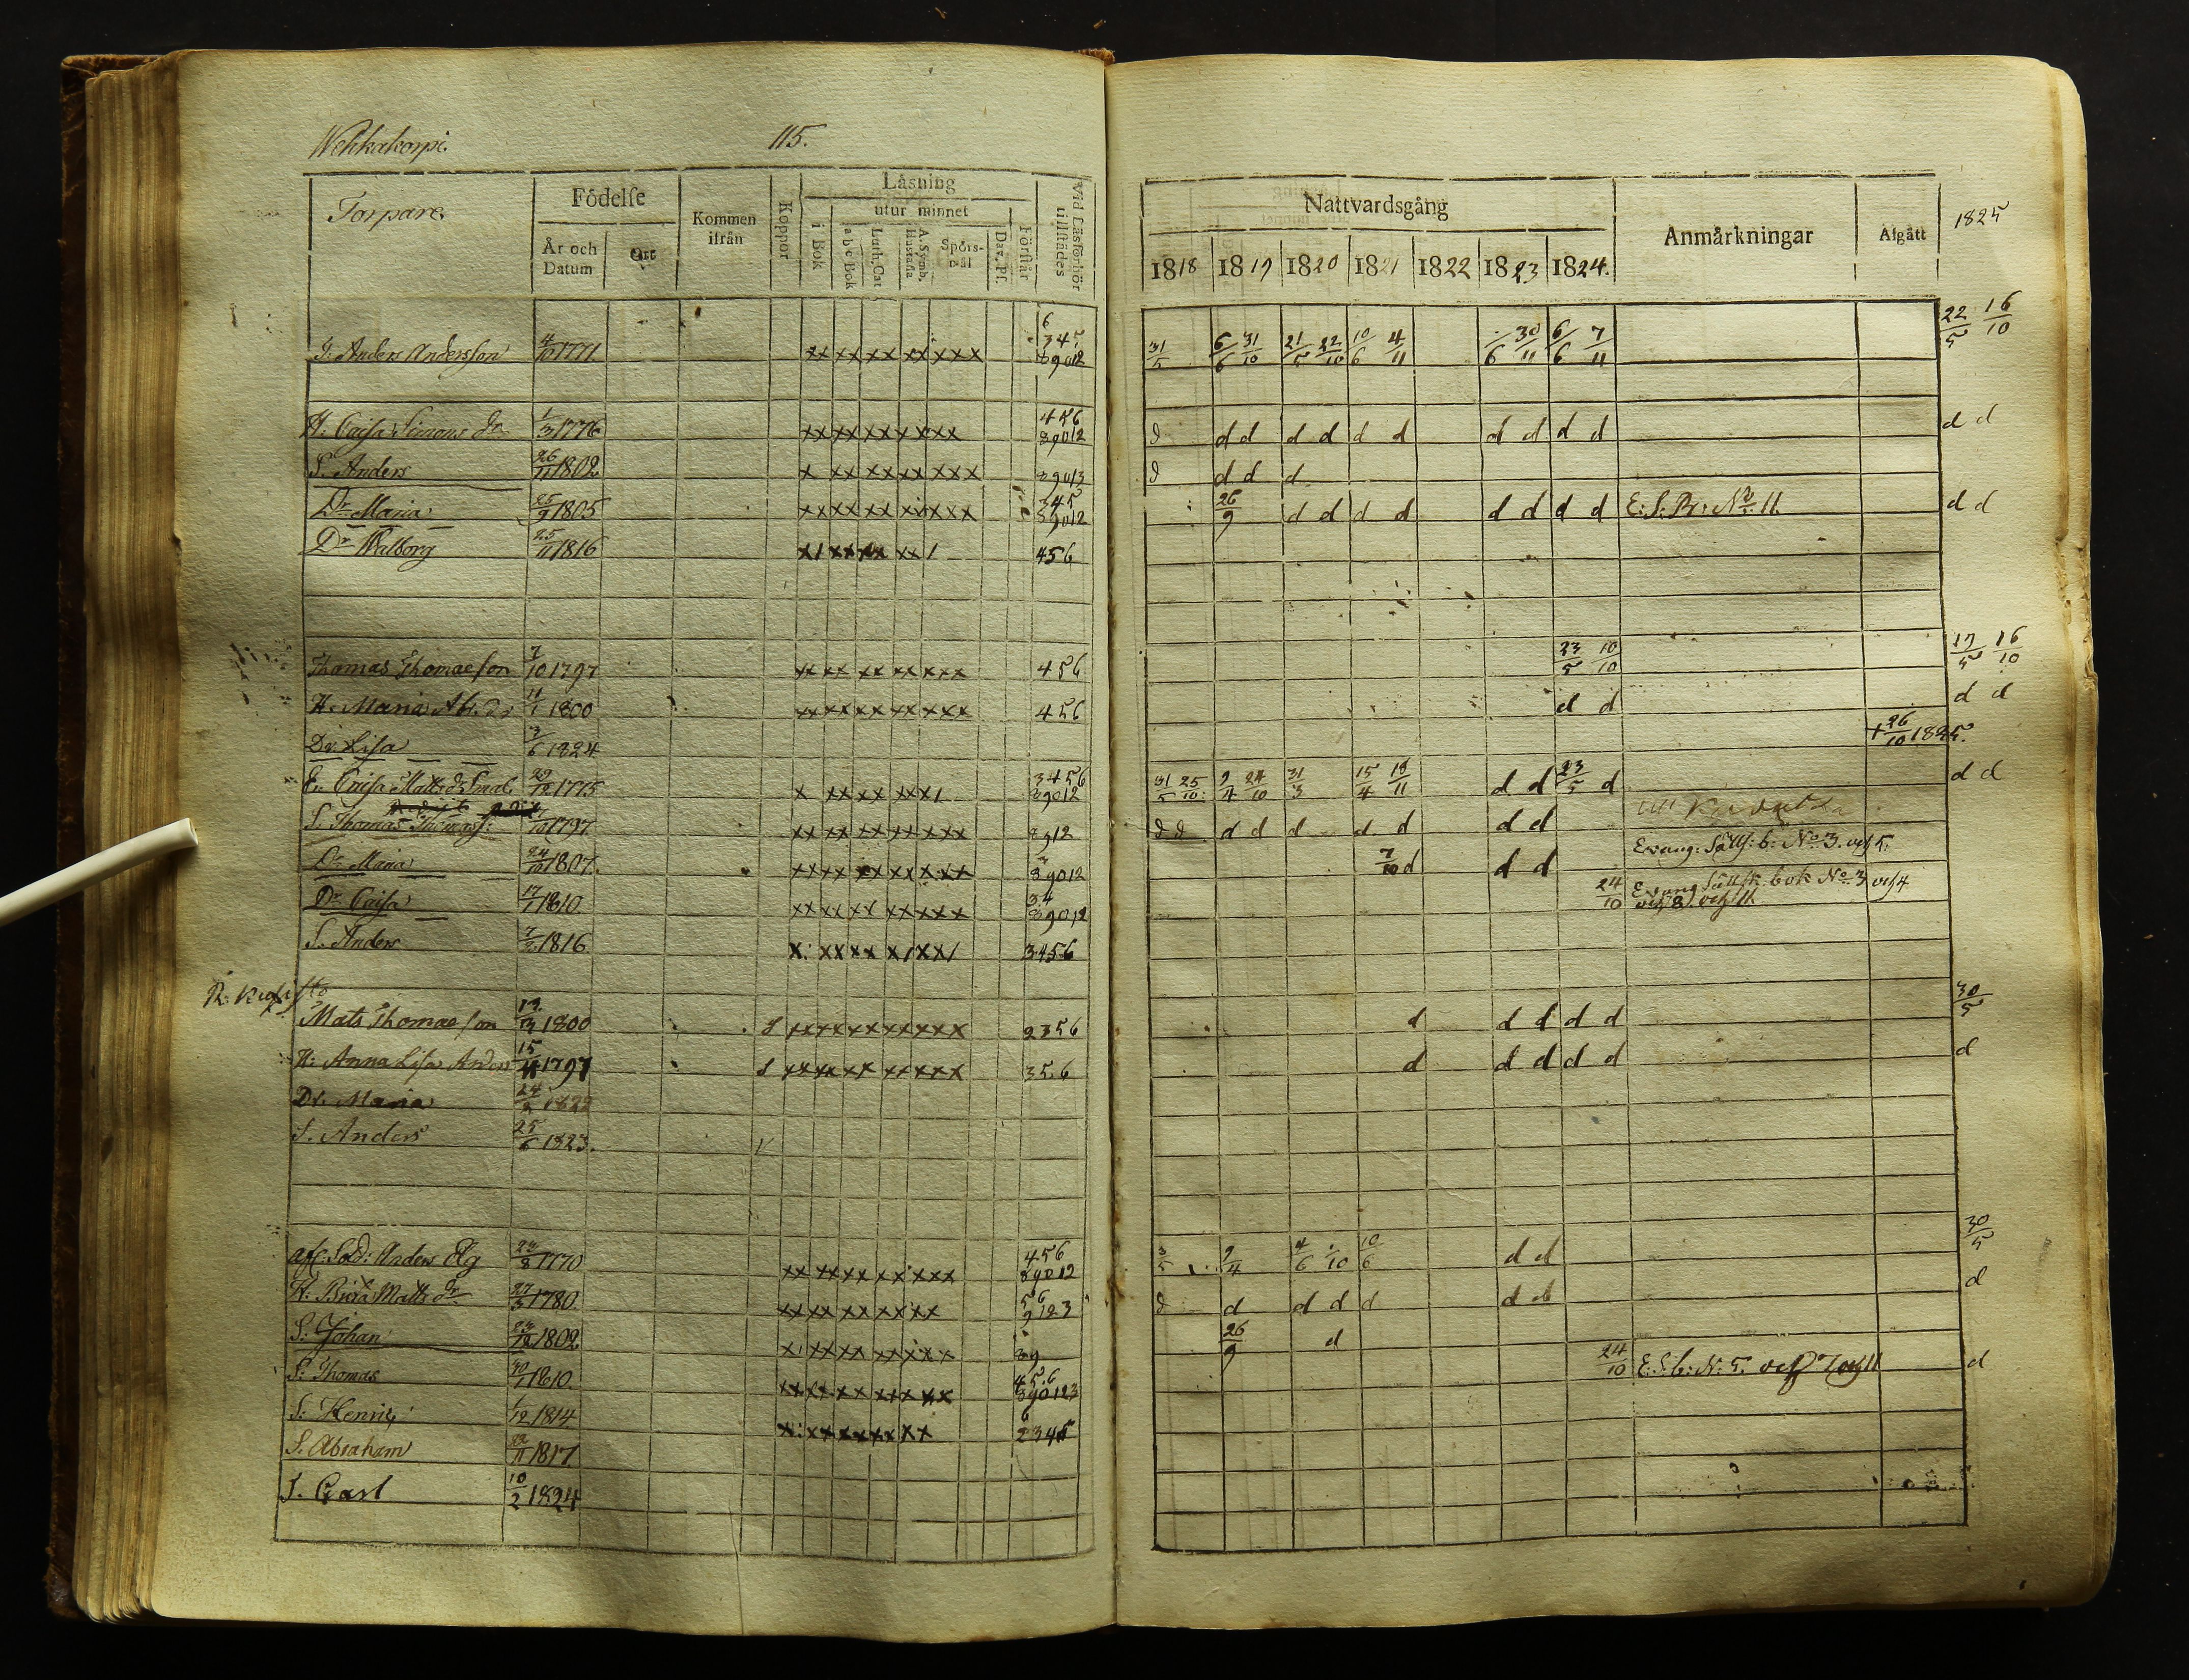 Wehkakorpi. 115.
Torpare.
Födelse
År och Datum
Ort
Kommen ifrån
Koppor
Läsning
utur minnet
i Bok
a b c Bok
Luth. Cat
A. Symb. Hustafla
Spörs-mål
Dav. Ps.
Förstår
Vid Läsförhör tillstädes
Nattvardsgång
1818 1819 1820 1821 1822 1823 1824.
Anmärkningar
Afgått
1825
T. Anders Andersson 4/10 1771. xx xx xx xx xxx 6 345 89012 31/5 6/6 31/10 21/5 22/10 10/6 4/11 /6 30/11 6/6 7/11 22/5 16/10
H. Caisa Simons dr 1/3 1776 xx xx xx x xxx 456 89012 d d d d d d d d d d d d d
S. Anders 26/11 1802 x xx xx xx xxx 89013 d d d d
Dr Maria 25/9 1805 xx xx xx xx xxx 345 89012 26/9 d d d d d d d d E: S: Br: No 11. d d
Dr Walborg 25/11 1816 x/ xx xx xx / 456
Thomas Thomasson 7/10 1797 xx xx xx xx xxx 456 23/5 10/10 17/5 16/10
H. Maria Abr. dr 11/1 1800 xx xx xx xx xxx 456 d d d d
Dr Lisa 3/6 1824 + 26/10 1825.
E. Caisa Matts dr 29/12 1775 x xx xx xx x/ 3456 89012 31/5 25/10 9/4 24/10 31/3 15/4 18/11 d d 23/5 d d d
S. Thomas Thomass: /10 1797. xx xx xx xx xxx 8912 d d d d d d d d d till
Dr Maria 24/10 1807. xx xx xx xx xxx 89012 7/10 d d d Evang: Sällsk: b: No 3. och 5.
Dr Caisa 17/1 1810. xx xx xx xx xxx 34 89012 24/10 Evang Sällsk. bok No 3 och 4 och 8 och 11
S. Anders 7/2 1816. x: xx xx x/ xx/ 3456
Mats Thomasson 13/3 1800 S xx xx xx xx xxx 2356 d d d d d 30/5
H: Anna Lisa Anders 15/11 1797 S xx xx xx xx xxx 356 d d d d d d
Dr. Maria 24/2 1822
S. Anders 25/6 1823. v
afsk: Sold: Anders Elg 24/8 1770 xx xx xx xx xxx 456 89012 3/5 9/4 4/6 /10 10/6 d d 30/5
H. Brita Matts dr 27/3 1780. xx xx xx xx xx 56 9123 d d d d d d d d
S: Johan 24/12 1802 x/ xx xx xx xxx 89 26/9 d
S: Thomas 30/1 1810. xx xx xx xx xxx 456 890123 24/10 E. S. b: N: 5. och 7 och 11 d
S: Henric 1/12 1814 x: xx xx xx xx 6 2345
S. Abraham 22/11 1817.
S. Carl 10/2 1824